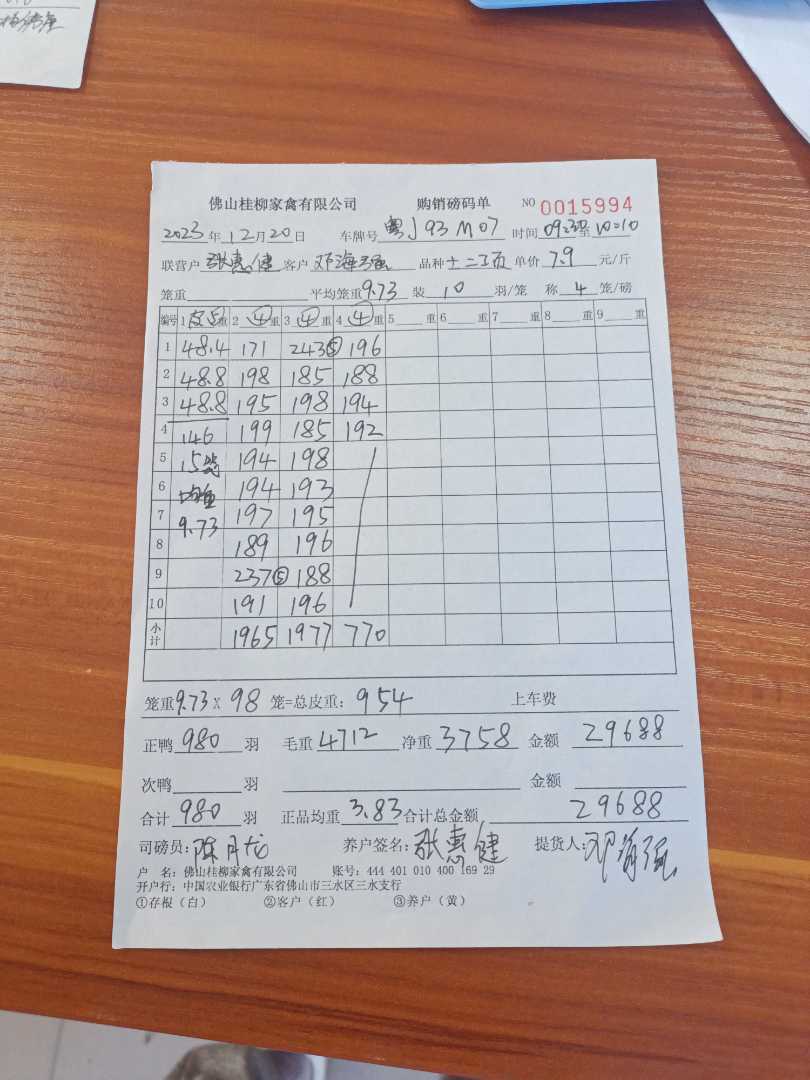 佛山桂柳家禽有限公司 购销磅码单 NO 0015994
2023年12月20日 车牌号 粤J 93M07 时间 09:30至10:10
联营户 张惠健 客户 邓海强 品种 单价 7.9 元/斤
笼重 平均笼重 9.73 装 10 羽/笼 称 4 笼/磅
编号 1 皮重 2 ④ 重 3 ④ 重 4 ④ 重 5 重 6 重 7 重 8 重 9 重
1 48.4 171 243⑤ 196
2 48.8 198 185 188
3 48.8 195 198 194
4 146 199 185 192
5 15笼 194 198
6 均重 194 193
7 9.73 197 195
8 189 196
9 237⑤ 188
10 191 196
小计 1965 1977 770
笼重 9.73 X 98 笼=总皮重: 954 上车费
正鸭 980 羽 毛重 4712 净重 3758 金额 29688
次鸭 羽 金额
合计 980 羽 正品均重 3.83 合计总金额 29688
司磅员: 陈月龙 养户签名: 张惠健 提货人: 邓海强
户 名: 佛山桂柳家禽有限公司 账号: 444 401 010 400 169 29
开户行: 中国农业银行广东省佛山市三水区三水支行
①存根(白) ②客户(红) ③养户(黄)